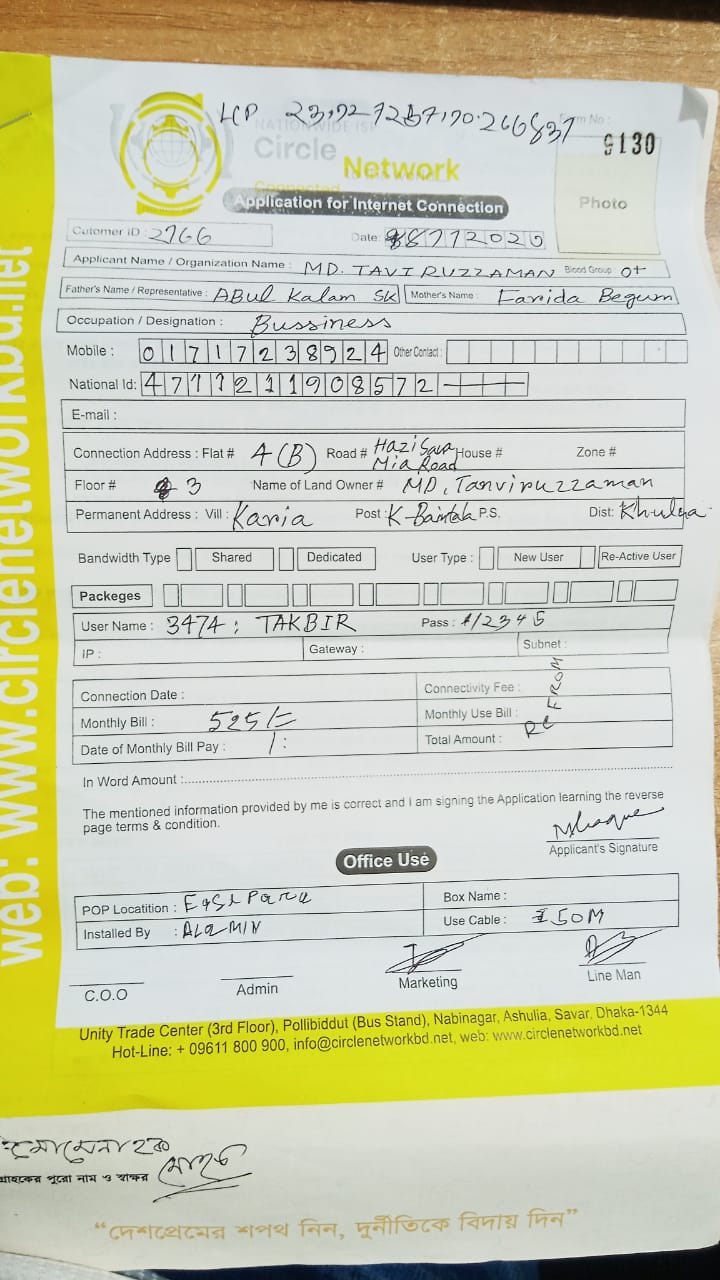 LCP
NATIONWIDE ISP
Form No :
Circle
Network
9130
Connected
Application for Internet Connection
Photo
Cutomer ID : 2766
Date:
Applicant Name / Organization Name : MD. TAVIRUZZAMAN Blood Group O+
Father's Name / Representative : ABul Kalam SK Mother's Name : Farida Begum
Occupation / Designation : Bussiness
Mobile : 01717238924 Other Contact :
National Id: 4711211908572
E-mail :
Connection Address : Flat # 4(B) Road # Hazi Mia Road House # Zone #
Floor # 3 Name of Land Owner # MD, Tanviruzzaman
Permanent Address : Vill : Karia Post : K- P.S. Dist: Khulna
Bandwidth Type Shared Dedicated User Type : New User Re-Active User
Packeges
User Name : 3474 : TAKBIR Pass : 12345
IP : Gateway : Subnet :
Connection Date : Connectivity Fee :
Monthly Bill : 525/= Monthly Use Bill :
Date of Monthly Bill Pay : Total Amount : FROM
In Word Amount :
The mentioned information provided by me is correct and I am signing the Application learning the reverse
page terms & condition.
Applicant's Signature
Office Use
POP Locatition : East Para Box Name :
Installed By : ALa MIN Use Cable : 50M
C.O.O Admin Marketing Line Man
Unity Trade Center (3rd Floor), Pollibiddut (Bus Stand), Nabinagar, Ashulia, Savar, Dhaka-1344
Hot-Line: + 09611 800 900, info@circlenetworkbd.net, web: www.circlenetworkbd.net
web: www.circlenetworkbd.net
গ্রাহকের পুরো নাম ও স্বাক্ষর
“দেশপ্রেমের শপথ নিন, দুর্নীতিকে বিদায় দিন”